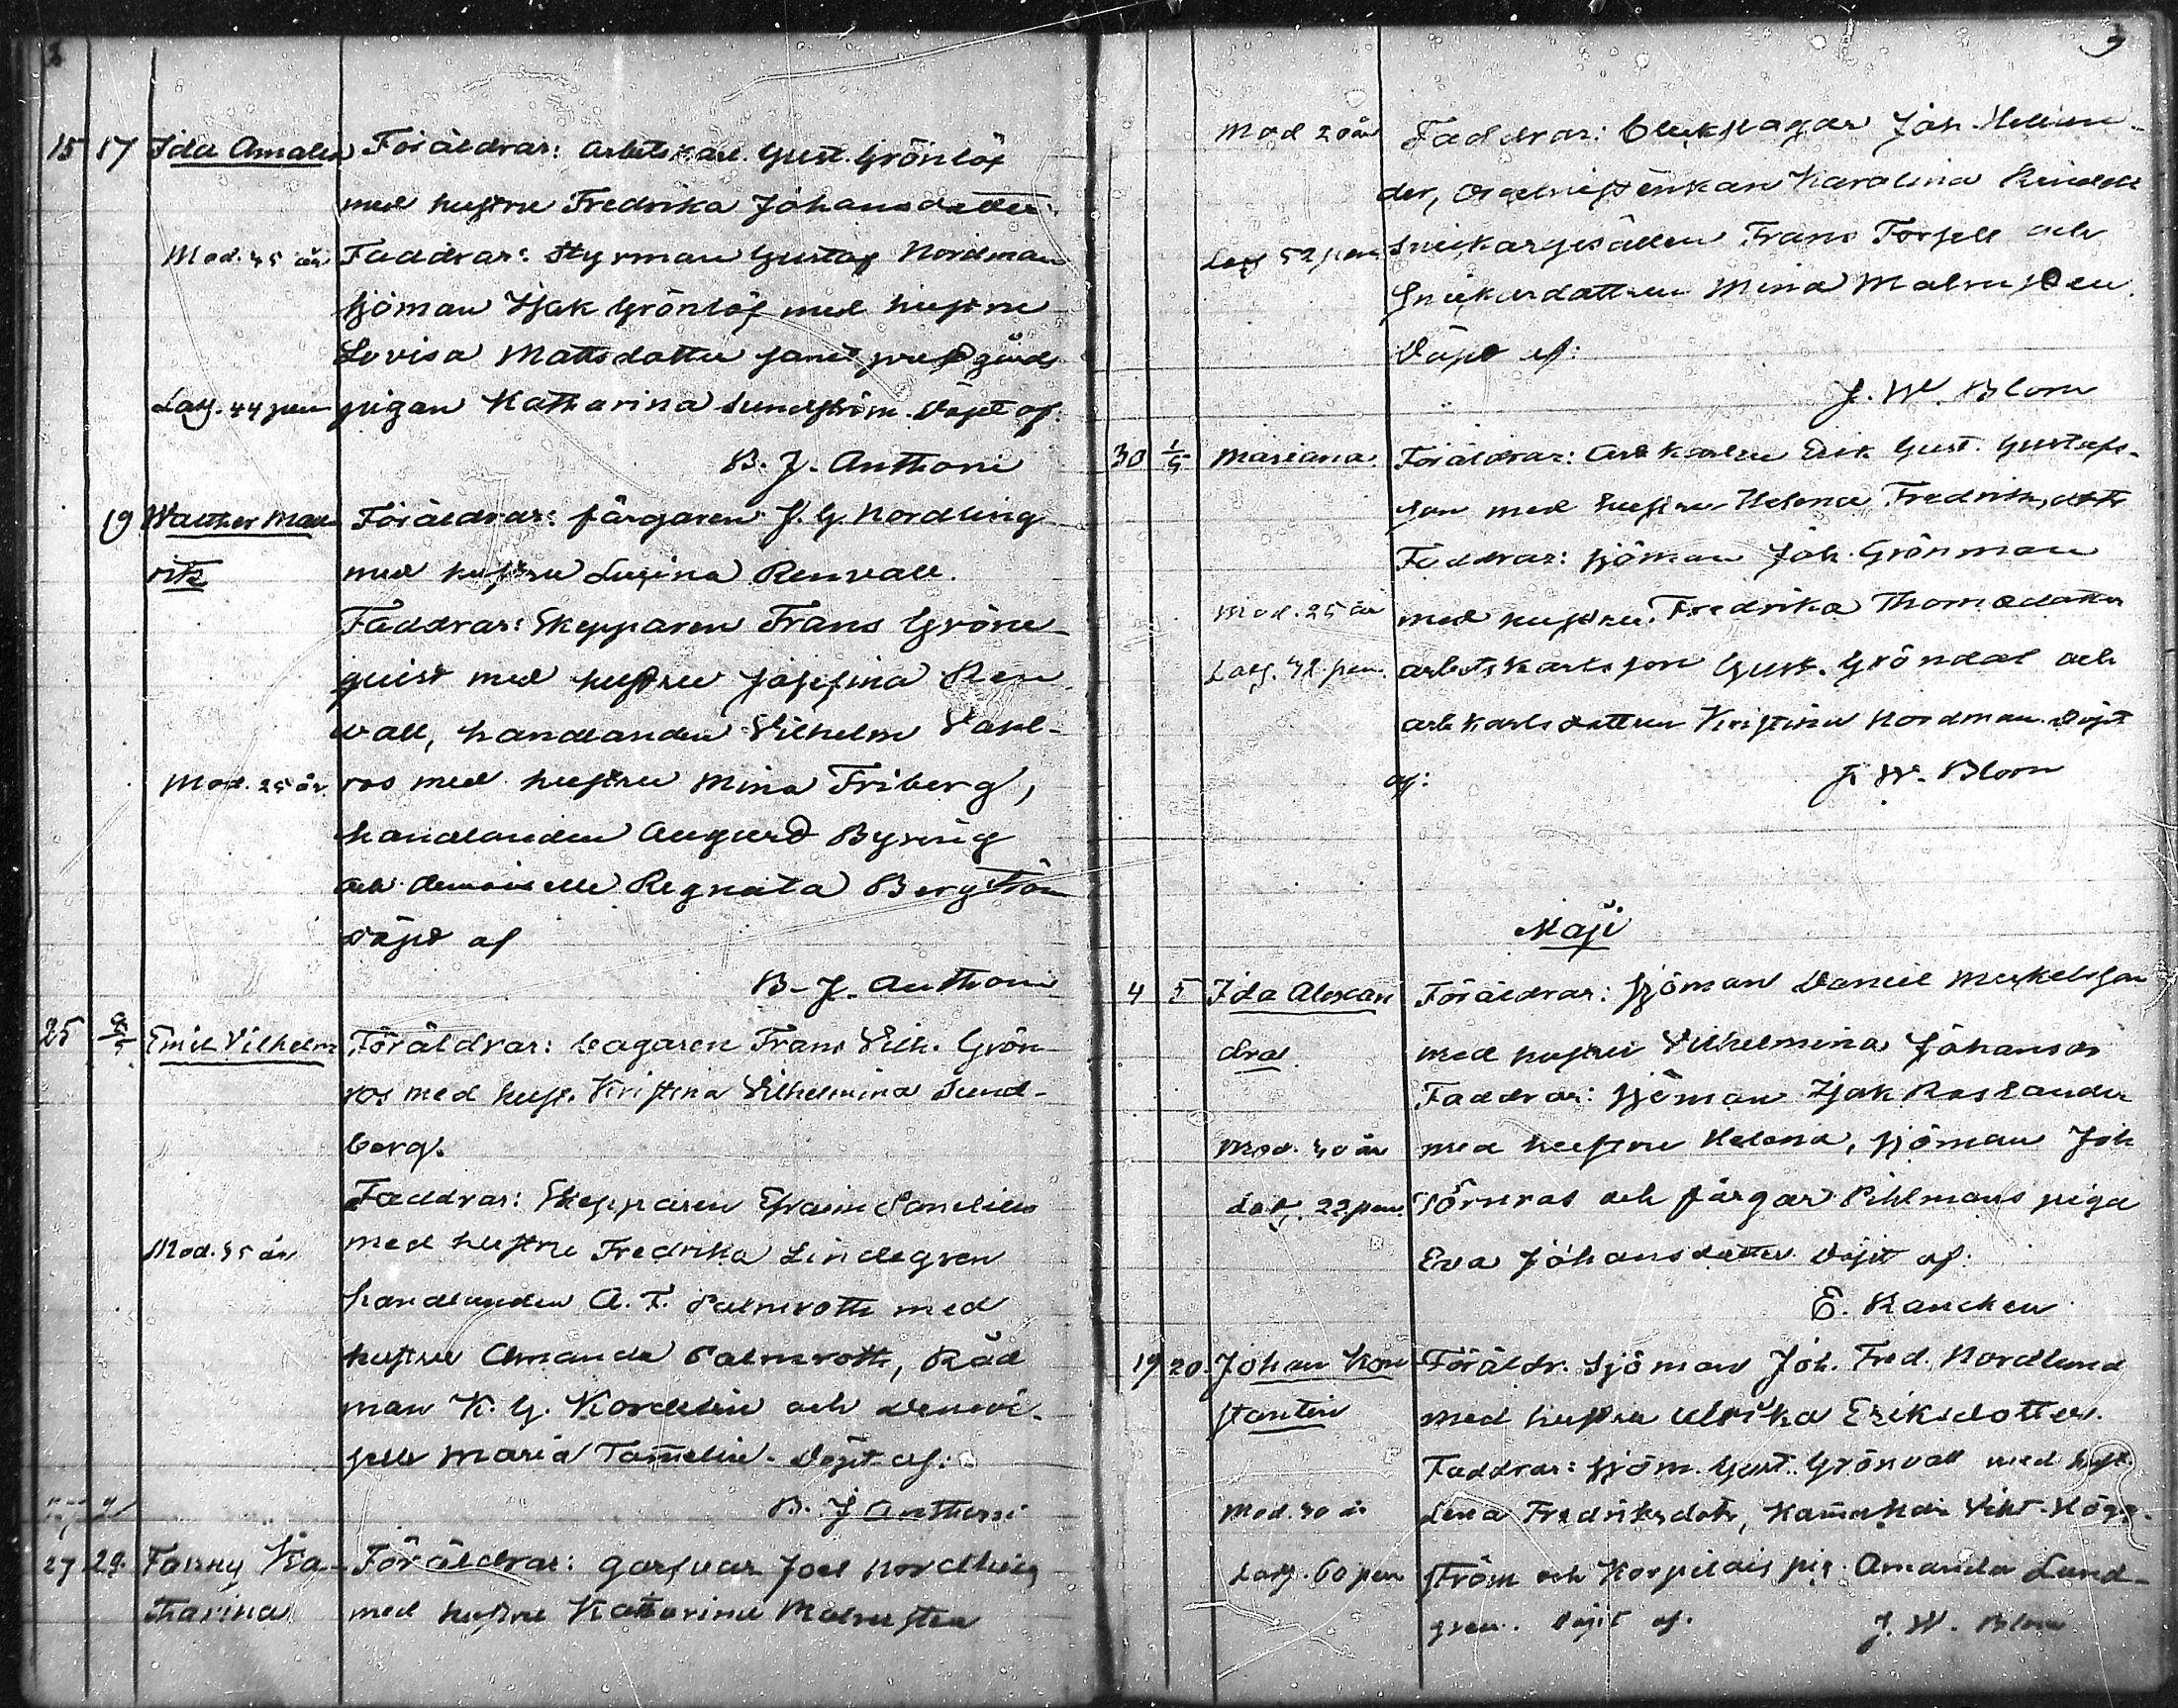 15 17 Ida Amalia Föräldrar: arbetskarl. Gust. Grönlöf
med hustru Fredrika Johansdotter.
Mod. 35 år Faddrar: Styrman Gustaf Nordman
sjöman Isak Grönlöf med hustru
Lovisa Mattsdotter samt prestgårds
Lösg. 44 pen pigan Katharina Sundström. Döpt af:
B. J. Anthoni
19 Walther Mau- Föräldrar: färgaren J. G. Nordling
ritz med hustru Lusina Renvall.
Faddrar: Skepparen Frans Grön-
quist med hustru Josefina Ren
vall, handlanden Vilhelm Vahl-
Mod. 25 år. ros med hustru Mina Friberg,
handlanden August Byring
och demoiselle Regnata Bergström
döpt af
B. J. Anthoni
25 Emil Vilhelm Föräldrar: bagaren Frans Vilh. Grön
ros med hust. Kristina Vilhelmina Sund-
berg.
Faddrar: Skepparen Efraim
Mod. 35 år med hustru Fredrika Lindegren
handlanden A. F. Palmroth med
hustru Amanda Palmroth, Råd
man K. G. Kordelin och demoi-
selle Maria Tamelin. Döpt af:
B. J. Anthoni
27 29. Fanny Ka- Föräldrar: garfvar Joel Nordling
tharina med hustru Katharina Malmsten
Mod 20 år Faddrar: Bleckslagar Joh. Helen-
der, Karolina
52 pen Snickargesällen Frans Forsell och
Snickardottren Mina Malmsten.
Döpt af:
J. W. Blom
30 1/5 Mariana. Föräldrar: Arbkarlen Erik Gust. Gustafs-
son med hustru Helena Fredriksdotr
Faddrar: sjöman Joh. Grönman
Mod. 25 år med hustru Fredrika Thomasdotter
Lösg. pen. arbetskarlsson Gust. Gröndal och
arbkarlsdottren Kristina Nordman. Döpt
af: J. W. Blom
Maji
4 5 Ida Alexan Föräldrar: sjöman Daniel Mickelsson
dra. med hustru Vilhelmina Johansdr
Faddrar: sjöman Isak Roslander
Mod. 30 år med hustru Helena, sjöman Joh
Lösg. 22 pen. Törnros och färgar Pihlmans piga
Eva Johansdotter. Döpt af:
E. Rancken
19 20. Johan Kon- Föräldr. Sjöman Joh. Fred. Nordlund
stantin med hustru Ulrika Eriksdotter.
Faddrar: sjöm. Gust. Grönvall med hust.
Mod. 30 år Lena Fredriksdotr, Vikt. Hög-
Lösg. 60 pen ström och Hospitals pig. Amanda Lund-
gren. Döpt af. J. W. Blom